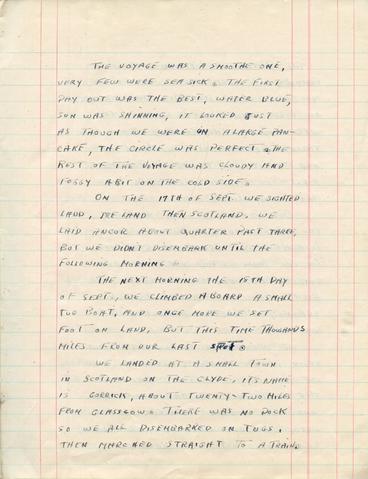 THE VOYAGE WAS A SMOOTHE ONE,
VERY FEW WERE SEASICK. THE FIRST
DAY OUT WAS THE BEST, WATER BLUE,
SUN WAS SHINNING, IT LOOKED JUST
AS THOUGH WE WERE ON A LARGE PAN-
CAKE, THE CIRCLE WAS PERFECT. THE
REST OF THE VOYAGE WAS CLOUDY AND
FOGGY A BIT ON THE COLD SIDE.
ON THE 17TH OF SEPT. WE SIGHTED
LAND, IRELAND THEN SCOTLAND. WE
LAID ANCOR ABOUT QUARTER PAST THREE,
BUT WE DIDN'T DISEMBARK UNTIL THE
FOLLOWING MORNING.
THE NEXT MORNING THE 18TH DAY
OF SEPT., WE CLIMBED ABOARD A SMALL
TUG BOAT, AND ONCE MORE WE SET
FOOT ON LAND, BUT THIS TIME THOUSANDS
MILES FROM OUR LAST SPOT.
WE LANDED AT A SMALL TOWN
IN SCOTLAND ON THE CLYDE, ITS NAME
IS GORRICK, ABOUT TWENTY-TWO MILES
FROM GLASSGOW. THERE WAS NO DOCK
SO WE ALL DISEMBARKED ON TUGS,
THEN MARCHED STRAIGHT TO A TRAIN.